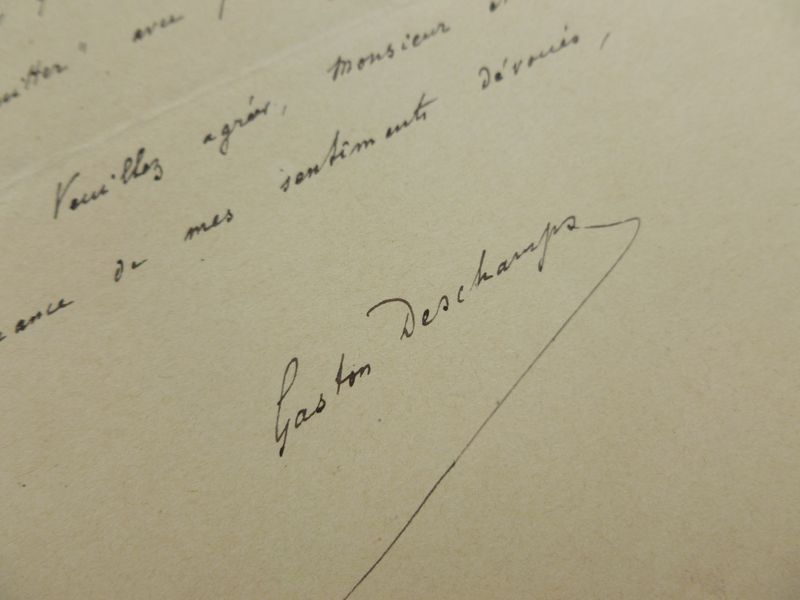 avec
Veuillez agréer, Monsieur
ance de mes sentiments dévoués,
Gaston Deschamps